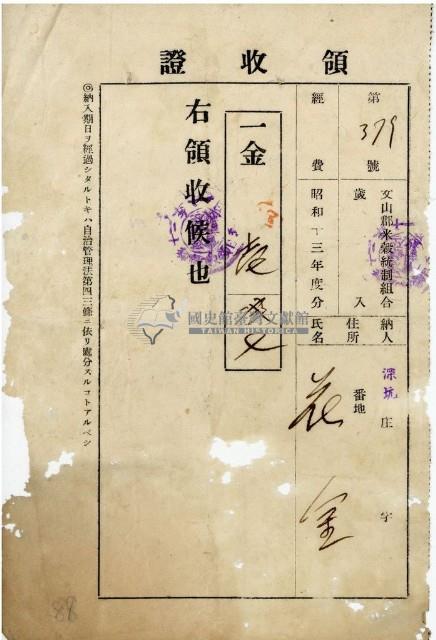 領收證
第379號
文山郡米穀統制組合
歲入
經費
昭和十三年度分
納人
住所
氏名
深坑庄
字
番地
一金
右領收候也
◎納入期日ヲ經過シタルトキハ自治管理法第四三條ニ依リ處分スルコトアルベシ
國史館臺灣文獻館
TAIWAN HISTORICA
88